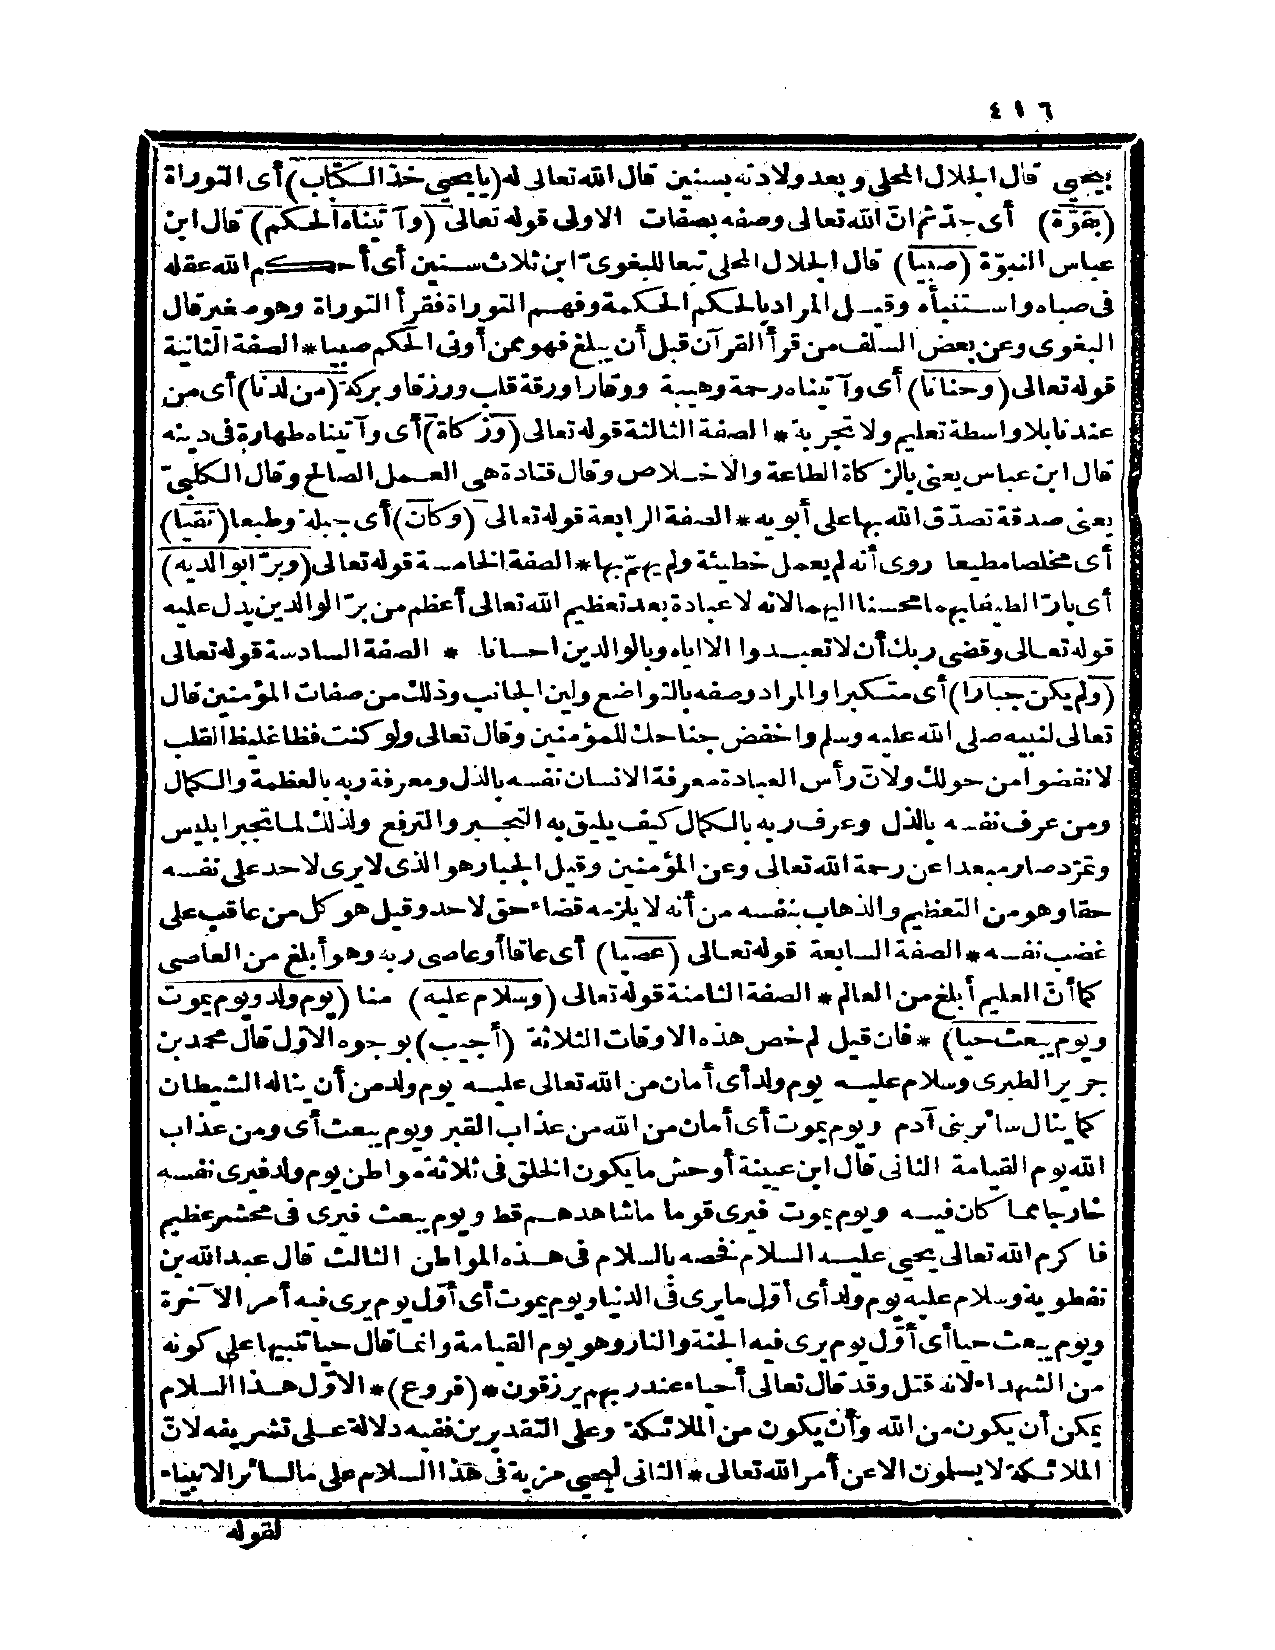 ٤١٦
يحيى قال الجلال المحلى وبعد ولادته بسنين قال الله تعالى له (يا يحيى خذ الكتاب) أى التوراة
(بقوّة) أى بجدّ ثم انّ الله تعالى وصفه بصفات الاولى قوله تعالى (وآتيناه الحكم) قال ابن
عباس النبوّة (صبيا) قال الجلال المحلى تبعا للبغوىّ ابن ثلاث سنين أى أحكم الله عقله
فى صباه واستنبأه وقيل المراد بالحكم الحكمة وفهم التوراة فقرأ التوراة وهو صغير قال
البغوى وعن بعض السلف من قرأ القرآن قبل أن يبلغ فهو ممن أوتى الحكم صبيا * الصفة الثانية
قوله تعالى (وحنانا) أى وآتيناه رحمة وهيبة ووقارا ورقة قلب ورزقا وبركة (من لدنا) أى من
عندنا بلا واسطة تعليم ولا تجربة * الصفة الثالثة قوله تعالى (وزكاة) أى وآتيناه طهارة فى دينه
قال ابن عباس يعنى بالزكاة الطاعة والاخلاص وقال قتادة هى العمل الصالح وقال الكلبىّ
يعنى صدقة تصدّق الله بها على أبويه * الصفة الرابعة قوله تعالى (وكان) أى جبلة وطبعا (تقيا)
أى مخلصا مطيعا روى أنه لم يعمل خطيئة ولم يهمّ بها * الصفة الخامسة قوله تعالى (وبرّا بوالديه)
أى بارّا لطيفا بهما محسنا اليهما لانه لا عبادة بعد تعظيم الله تعالى أعظم من برّ الوالدين يدل عليه
قوله تعالى وقضى ربك أن لا تعبدوا الا اياه وبالوالدين احسانا * الصفة السادسة قوله تعالى
(ولم يكن جبارا) أى متكبرا والمراد وصفه بالتواضع ولين الجانب وذلك من صفات المؤمنين قال
تعالى لنبيه صلى الله عليه وسلم واخفض جناحك للمؤمنين وقال تعالى ولو كنت فظا غليظ القلب
لانفضوا من حولك ولانّ رأس العبادة معرفة الانسان نفسه بالذل ومعرفة ربه بالعظمة والكمال
ومن عرف نفسه بالذل وعرف ربه بالكمال كيف يليق به التجبر والترفع ولذلك لما تجبر ابليس
وتمرّد صار مبعدا عن رحمة الله تعالى وعن المؤمنين وقيل الجبار هو الذى لا يرى لاحد على نفسه
حقا وهو من التعظيم والذهاب بنفسه من أنه لا يلزمه قضاء حق لاحد وقيل هو كل من عاقب على
غضب نفسه * الصفة السابعة قوله تعالى (عصيا) أى عاقا أو عاصى ربه وهو أبلغ من العاصى
كما أنّ العليم أبلغ من العالم * الصفة الثامنة قوله تعالى (وسلام عليه) منا (يوم ولد ويوم يموت
ويوم يبعث حيا) * فان قيل لم خص هذه الاوقات الثلاثة (أجيب) بوجوه الاوّل قال محمد بن
جرير الطبرى وسلام عليه يوم ولد أى أمان من الله تعالى عليه يوم ولد من أن يناله الشيطان
كما ينال سائر بنى آدم ويوم يموت أى أمان من الله من عذاب القبر ويوم يبعث أى ومن عذاب
الله يوم القيامة الثانى قال ابن عيينة أوحش ما يكون الخلق فى ثلاثة مواطن يوم ولد فيرى نفسه
خارجا مما كان فيه ويوم يموت فيرى قوما ما شاهدهم قط ويوم يبعث فيرى فى محشر عظيم
فأكرم الله تعالى يحيى عليه السلام فخصه بالسلام فى هذه المواطن الثالث قال عبد الله بن
نفطوية وسلام عليه يوم ولد أى أوّل ما يرى فى الدنيا ويوم يموت أى أوّل يوم يرى فيه أمر الآخرة
ويوم يبعث حيا أى أوّل يوم يرى فيه الجنة والنار وهو يوم القيامة وانما قال حيا تنبيها على كونه
من الشهداء لانه قتل وقد قال تعالى أحياء عند ربهم يرزقون * (فروع) * الاوّل هذا السلام
يمكن أن يكون من الله وأن يكون من الملائكة وعلى التقديرين ففيه دلالة على تشريفه لانّ
الملائكة لا يسلمون الا عن أمر الله تعالى * الثانى ليحيى مزية فى هذا السلام على ما لسائر الانبياء
لقوله